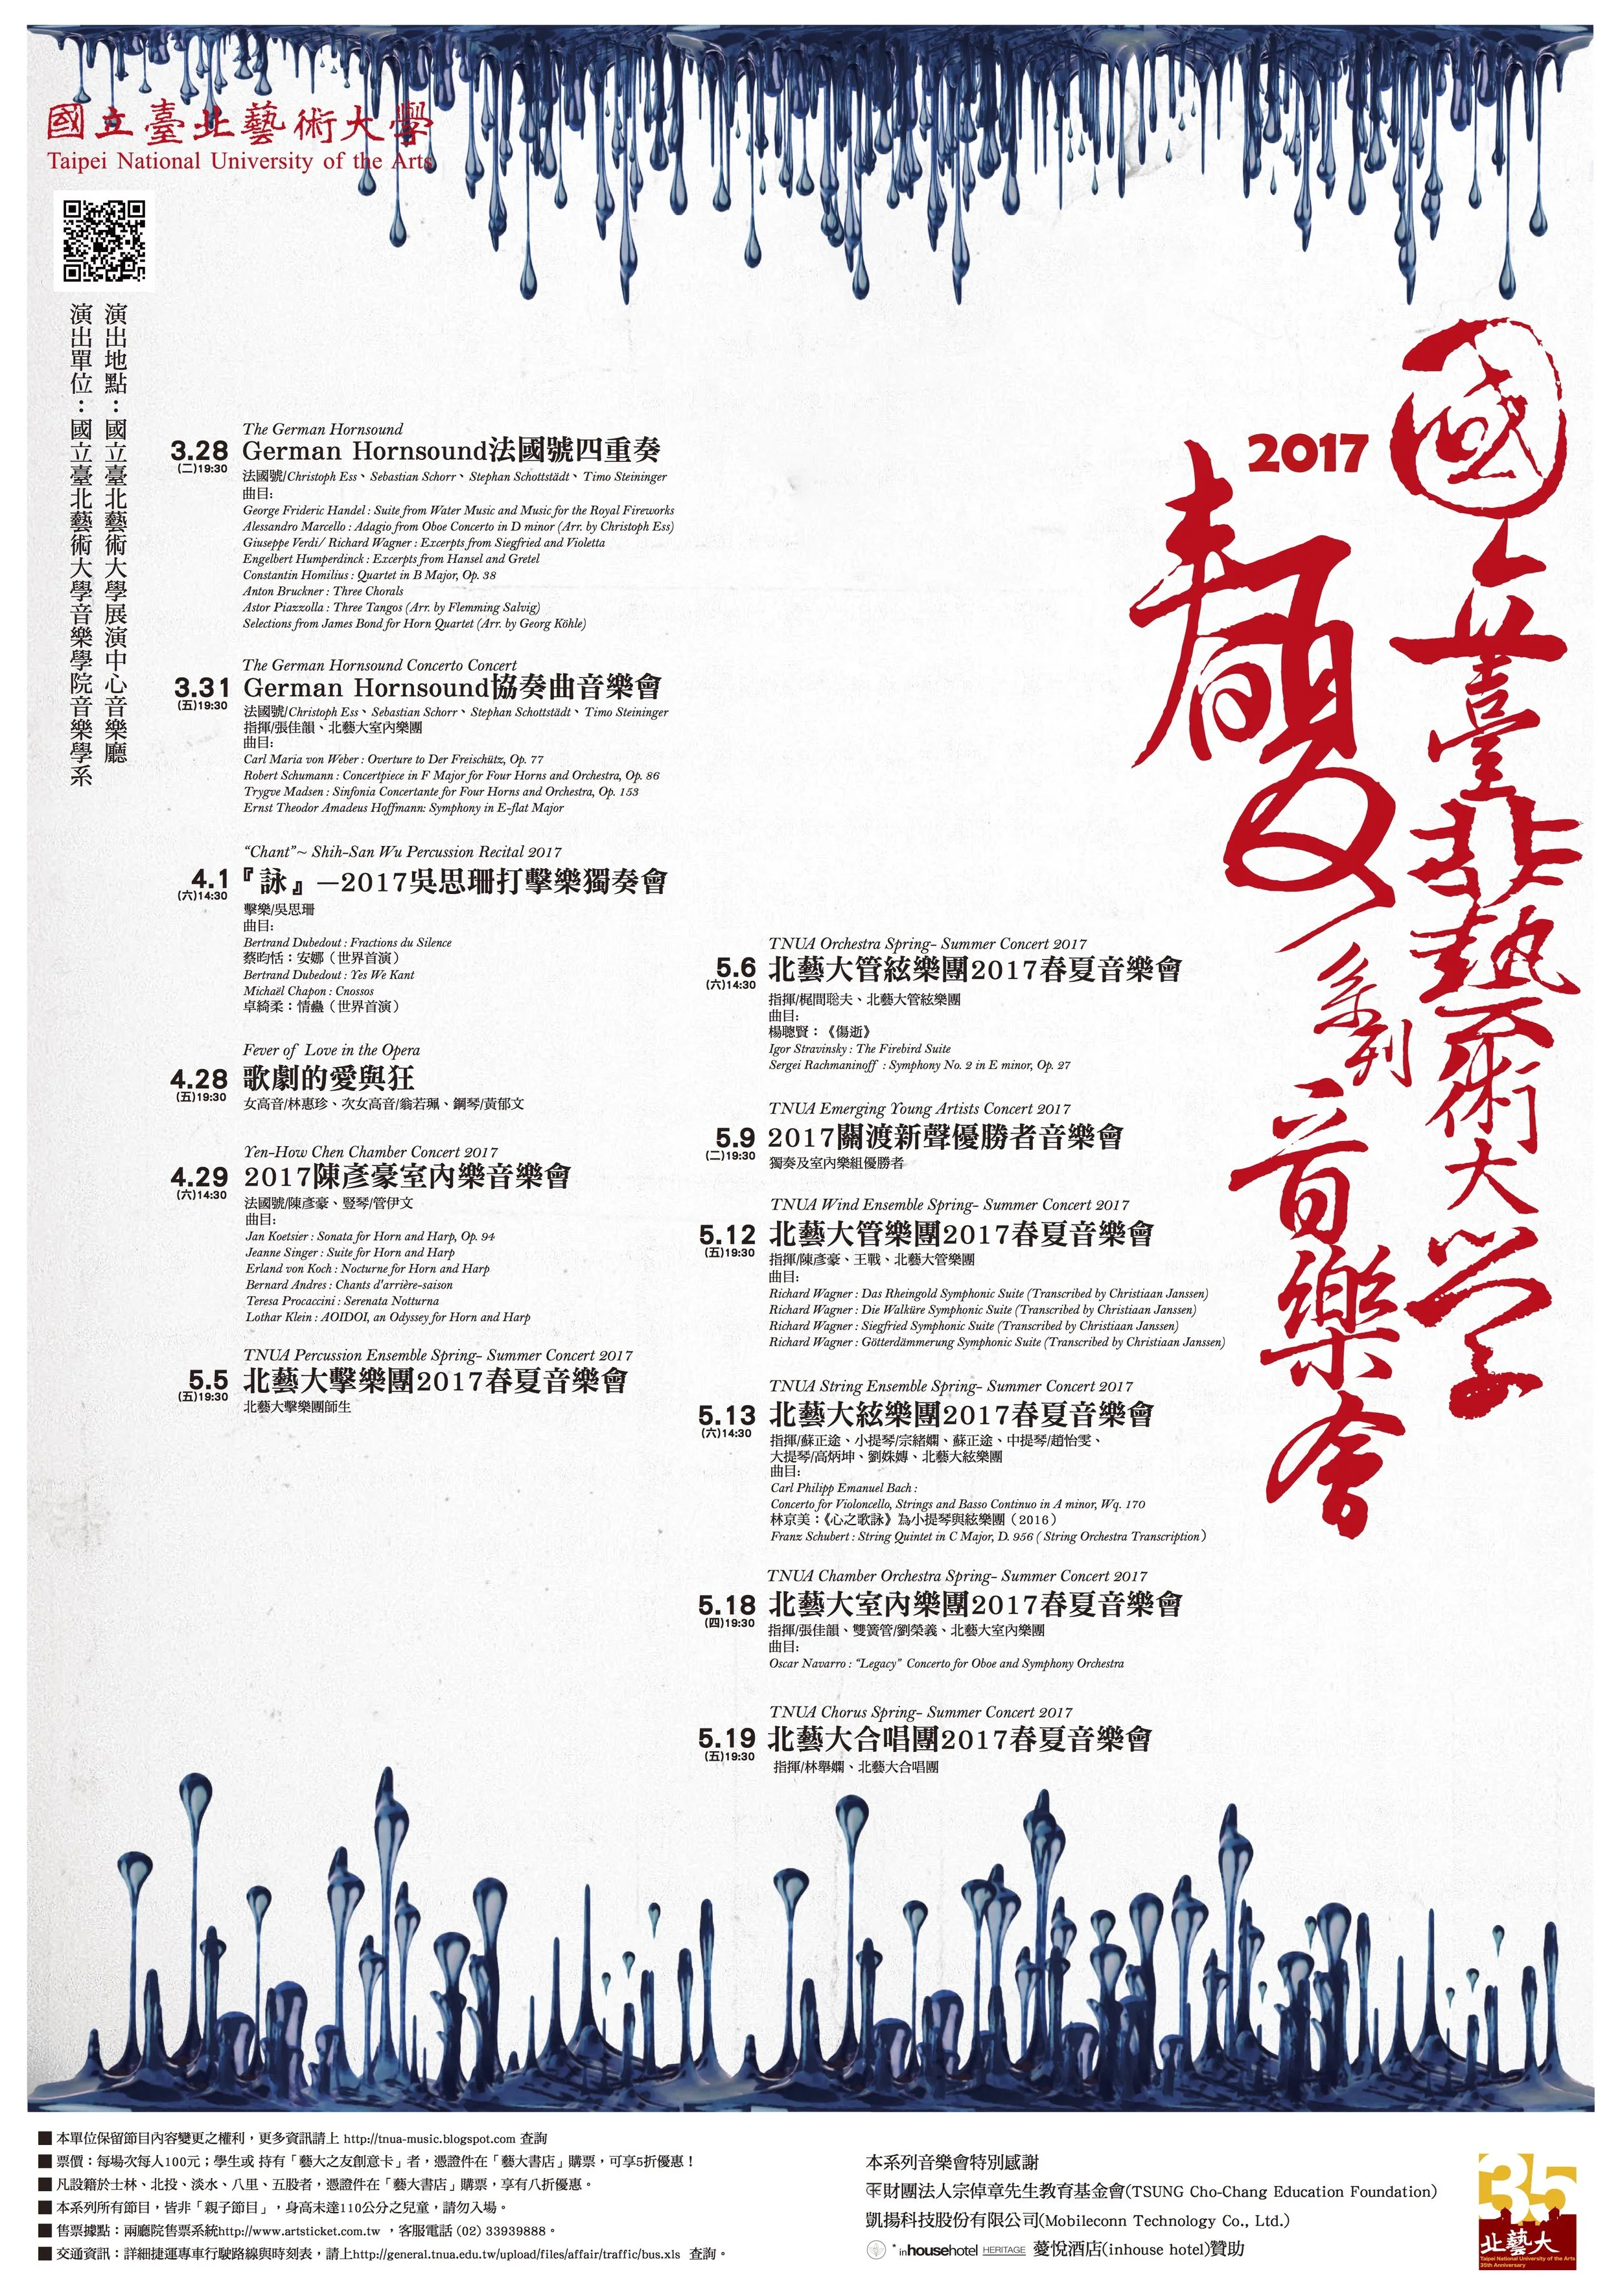 國立臺北藝術大學
Taipei National University of the Arts
演出地點：國立臺北藝術大學展演中心音樂廳
演出單位：國立臺北藝術大學音樂學院音樂學系
國立臺北藝術大學
2017
春夏
系列
音樂會
The German Hornsound
3.28
(二)19:30
German Hornsound法國號四重奏
法國號/Christoph Ess、Sebastian Schorr、Stephan Schottstädt、Timo Steininger
曲目:
George Frideric Handel : Suite from Water Music and Music for the Royal Fireworks
Alessandro Marcello : Adagio from Oboe Concerto in D minor (Arr. by Christoph Ess)
Giuseppe Verdi/ Richard Wagner : Excerpts from Siegfried and Violetta
Engelbert Humperdinck : Excerpts from Hansel and Gretel
Constantin Homilius : Quartet in B Major, Op. 38
Anton Bruckner : Three Chorals
Astor Piazzolla : Three Tangos (Arr. by Flemming Salvig)
Selections from James Bond for Horn Quartet (Arr. by Georg Köhle)
The German Hornsound Concerto Concert
3.31
(五)19:30
German Hornsound協奏曲音樂會
法國號/Christoph Ess、Sebastian Schorr、Stephan Schottstädt、Timo Steininger
指揮/張佳韻、北藝大室內樂團
曲目:
Carl Maria von Weber : Overture to Der Freischütz, Op. 77
Robert Schumann : Concertpiece in F Major for Four Horns and Orchestra, Op. 86
Trygve Madsen : Sinfonia Concertante for Four Horns and Orchestra, Op. 153
Ernst Theodor Amadeus Hoffmann: Symphony in E-flat Major
“Chant”~ Shih-San Wu Percussion Recital 2017
4.1
(六)14:30
『詠』—2017吳思珊打擊樂獨奏會
擊樂/吳思珊
曲目:
Bertrand Dubedout : Fractions du Silence
蔡昀恬：安娜（世界首演）
Bertrand Dubedout : Yes We Kant
Michaël Chapon : Cnossos
卓綺柔：情蠱（世界首演）
Fever of Love in the Opera
4.28
(五)19:30
歌劇的愛與狂
女高音/林惠珍、次女高音/翁若珮、鋼琴/黃郁文
Yen-How Chen Chamber Concert 2017
4.29
(六)14:30
2017陳彥豪室內樂音樂會
法國號/陳彥豪、豎琴/管伊文
曲目:
Jan Koetsier : Sonata for Horn and Harp, Op. 94
Jeanne Singer : Suite for Horn and Harp
Erland von Koch : Nocturne for Horn and Harp
Bernard Andres : Chants d'arrière-saison
Teresa Procaccini : Serenata Notturna
Lothar Klein : AOIDOI, an Odyssey for Horn and Harp
TNUA Percussion Ensemble Spring- Summer Concert 2017
5.5
(五)19:30
北藝大擊樂團2017春夏音樂會
北藝大擊樂團師生
TNUA Orchestra Spring- Summer Concert 2017
5.6
(六)14:30
北藝大管絃樂團2017春夏音樂會
指揮/梶間聡夫、北藝大管絃樂團
曲目:
楊聰賢：《傷逝》
Igor Stravinsky : The Firebird Suite
Sergei Rachmaninoff : Symphony No. 2 in E minor, Op. 27
TNUA Emerging Young Artists Concert 2017
5.9
(二)19:30
2017關渡新聲優勝者音樂會
獨奏及室內樂組優勝者
TNUA Wind Ensemble Spring- Summer Concert 2017
5.12
(五)19:30
北藝大管樂團2017春夏音樂會
指揮/陳彥豪、王戰、北藝大管樂團
曲目:
Richard Wagner : Das Rheingold Symphonic Suite (Transcribed by Christiaan Janssen)
Richard Wagner : Die Walküre Symphonic Suite (Transcribed by Christiaan Janssen)
Richard Wagner : Siegfried Symphonic Suite (Transcribed by Christiaan Janssen)
Richard Wagner : Götterdämmerung Symphonic Suite (Transcribed by Christiaan Janssen)
TNUA String Ensemble Spring- Summer Concert 2017
5.13
(六)14:30
北藝大絃樂團2017春夏音樂會
指揮/蘇正途、小提琴/宗緒嫻、蘇正途、中提琴/趙怡雯、
大提琴/高炳坤、劉姝嫥、北藝大絃樂團
曲目:
Carl Philipp Emanuel Bach :
Concerto for Violoncello, Strings and Basso Continuo in A minor, Wq. 170
林京美：《心之歌詠》為小提琴與絃樂團（2016）
Franz Schubert : String Quintet in C Major, D. 956 ( String Orchestra Transcription)
TNUA Chamber Orchestra Spring- Summer Concert 2017
5.18
(四)19:30
北藝大室內樂團2017春夏音樂會
指揮/張佳韻、雙簧管/劉榮義、北藝大室內樂團
曲目:
Oscar Navarro : “Legacy” Concerto for Oboe and Symphony Orchestra
TNUA Chorus Spring- Summer Concert 2017
5.19
(五)19:30
北藝大合唱團2017春夏音樂會
指揮/林舉嫻、北藝大合唱團
■ 本單位保留節目內容變更之權利，更多資訊請上 http://tnua-music.blogspot.com 查詢
■ 票價：每場次每人100元；學生或 持有「藝大之友創意卡」者，憑證件在「藝大書店」購票，可享5折優惠！
■ 凡設籍於士林、北投、淡水、八里、五股者，憑證件在「藝大書店」購票，享有八折優惠。
■ 本系列所有節目，皆非「親子節目」，身高未達110公分之兒童，請勿入場。
■ 售票據點：兩廳院售票系統http://www.artsticket.com.tw ，客服電話 (02) 33939888。
■ 交通資訊：詳細捷運專車行駛路線與時刻表，請上http://general.tnua.edu.tw/upload/files/affair/traffic/bus.xls 查詢。
本系列音樂會特別感謝
財團法人宗倬章先生教育基金會(TSUNG Cho-Chang Education Foundation)
凱揚科技股份有限公司(Mobileconn Technology Co., Ltd.)
inhousehotel HERITAGE 薆悅酒店(inhouse hotel)贊助
35
北藝大
Taipei National University of the Arts
35th Anniversary